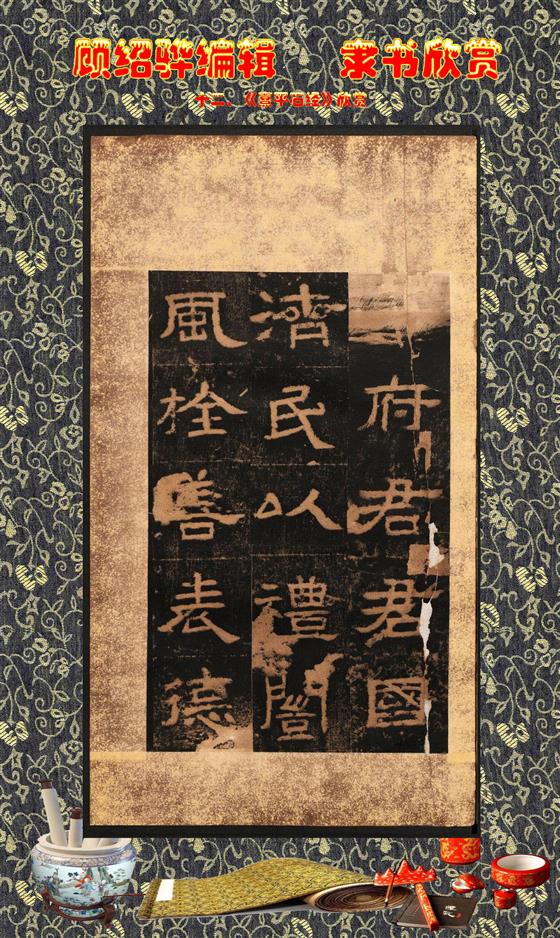 顾绍骅编辑 隶书欣赏
十二、《熹平石经》欣赏
府君君國
濟民以禮闓
風栓善表德